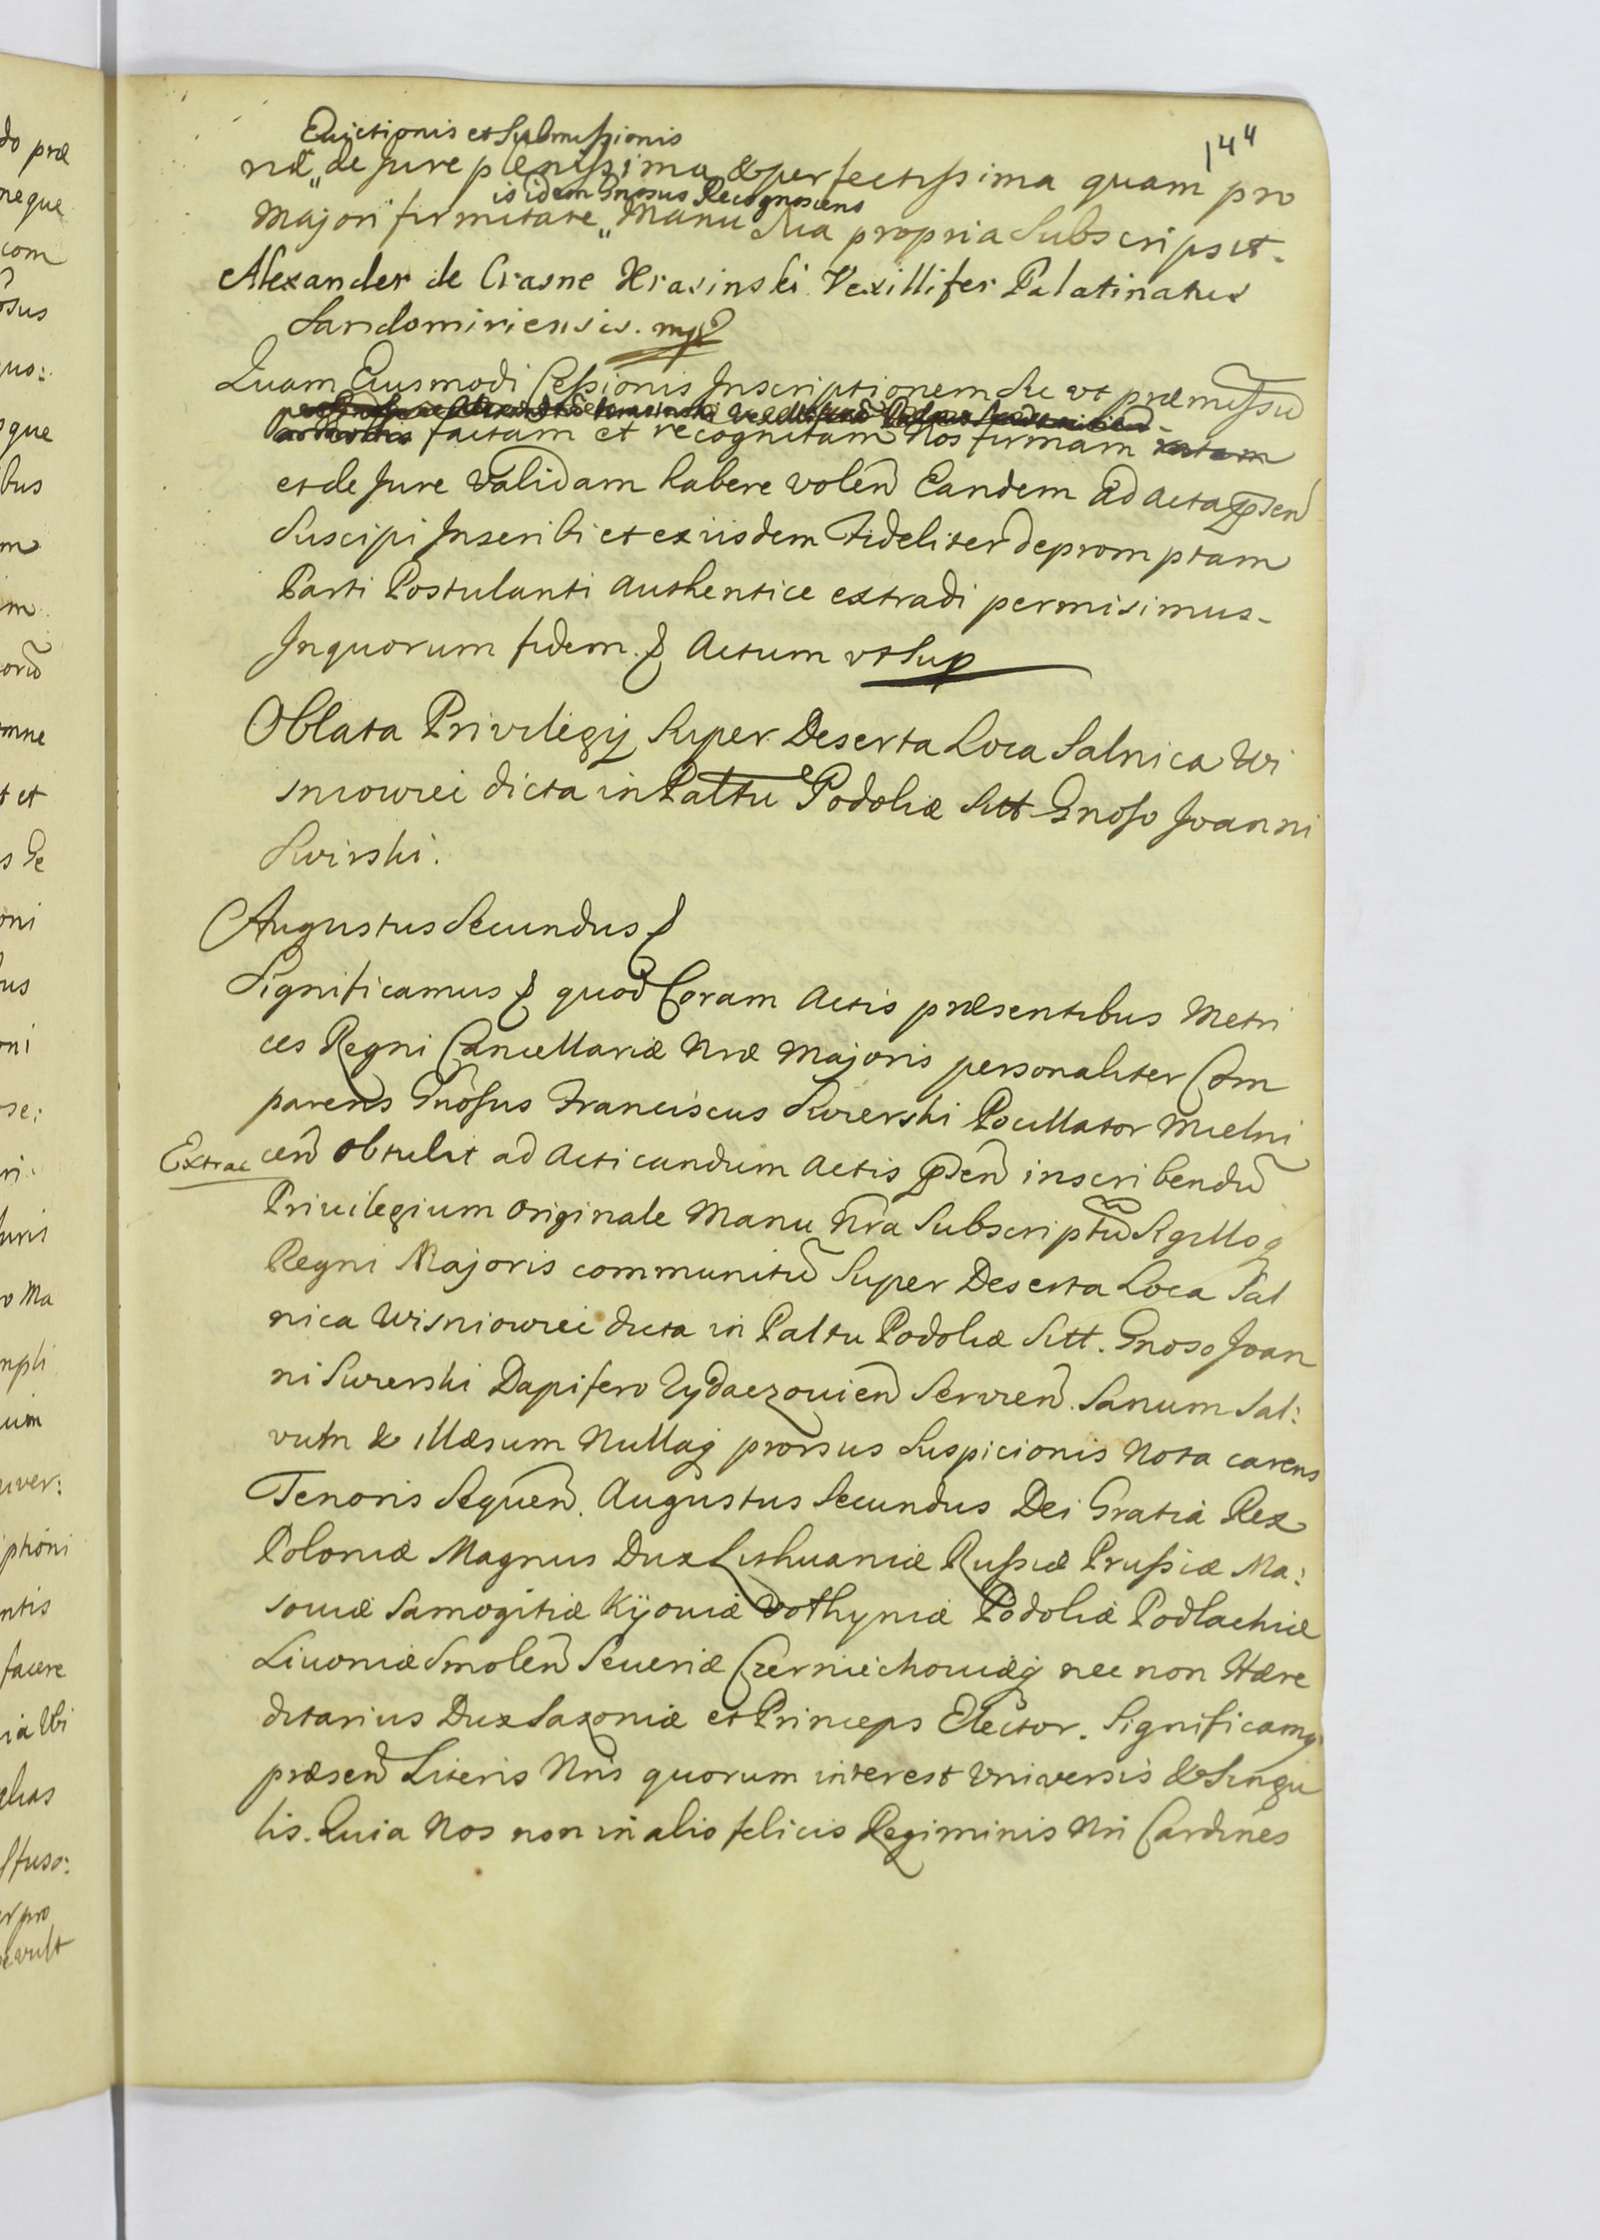 144
Evictionis et Submissionis
næ „ de Jure plenissima & perfectissima quam pro
is idem Gnosus Recognoscens
Majori firmitate „ Manu Sua propria Subscripsit.
Alexander de Crasne Krasinski Vexillifer Palatinatus
Sandomiriensis. mp
Quam Eiusmodi Cessionis Inscriptionem Sic vt præmissũ
factam et recognitam Nos firmam ratam
et de Jure validam habere volen̄ Eandem ad Acta p̄sen̄
Suscipi Inscribi et ex iisdem Fideliter depromptam
Parti Postulanti Authentice extradi permisimus.
In quorum fidem. & Actum vt Sup
Oblata Privilegij Super Deserta Loca Salnica Wi
sniowiei dicta in Palttu Podoliæ Sitt Gnoso Joanni
Swirski.
Augustus Secundus &
Significamus & quod Coram Actis præsentibus Metri
ces Regni Cancellariæ Nræ Majoris personaliter Com
parens Gnosus Franciscus Swierski Pocillator Mielni
Extrac
cen̄ obtulit ad Acticandum Actis p̄sen̄ inscribendũ
Privilegium Originale Manu Nra Subscriptũ Sigilloq
Regni Majoris communitũ Super Deserta Loca Sal
nica Wisniowiei dicta in Paltu Podoliæ Sitt. Gnoso Joan
ni Swierski Dapifero Zydaczovien̄ Servien̄. Sanum Sal:
vum & illæsum Nullaq prorsus Suspicionis Nota carens
Tenoris Sequen̄. Augustus Secundus Dei Gratia Rex
Poloniæ Magnus Dux Lithuaniæ Russiæ Prussiæ Ma:
soviæ Samogitiæ Kijoviæ Volhyniæ Podoliæ Podlachiæ
Livoniæ Smolen̄ Severiæ Czerniechoviæq nec non Hære
ditarius Dux Saxoniæ et Princeps Elector. Significamq
præsen̄ Literis Nris quorum interest Vniversis & Singu
lis. Quia Nos non in alio felicis Regiminis Nri Cardines